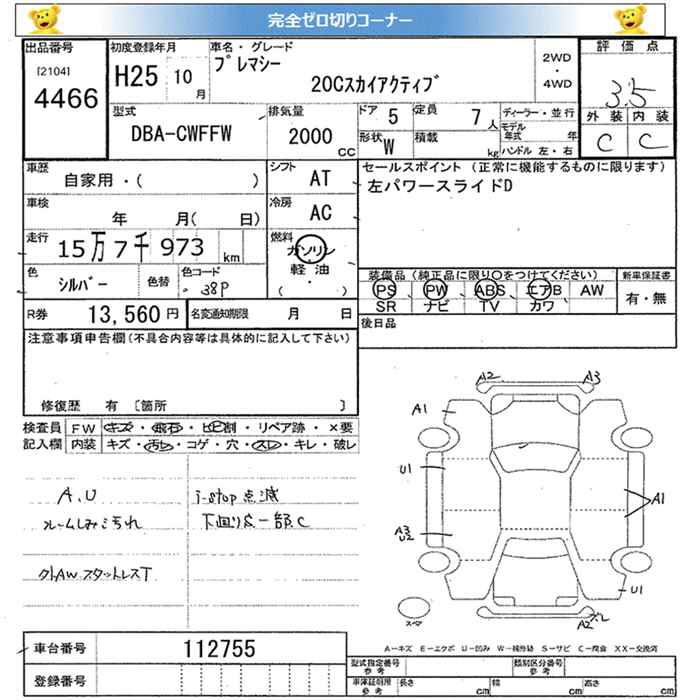 完全ゼロ切りコーナー
出品番号
[2104]
4466
初度登録年月
H25 10月
車名・グレード
プレマシー
20Cスカイアクティブ
2WD
・
4WD
評価点
3.5
外装 内装
C C
型式
DBA-CWFFW
排気量
2000
CC
ドア 5
定員 7人
形状 W
積載 kg
ディーラー・並行
モデル年式 年
ハンドル 左・右
車歴
自家用・( )
シフト
AT
車検
年 月( 日)
冷房
AC
走行
15万7千973 km
燃料
ガソリン
軽油
( ・ )
色
シルバー
色替
色コード
38P
R券 13,560円
名変通知期限 月 日
セールスポイント (正常に機能するものに限ります)
左パワースライドD
装備品 (純正品に限り〇をつけてください)
PS、PW、ABS、エアB AW
SR ナビ TV カワ
新車保証書
有・無
後日品
注意事項申告欄(不具合内容等は具体的に記入して下さい)
修復歴 有 〔箇所 〕
検査員記入欄
FW キズ・飛石・ヒビ割・リペア跡・×要
内装 キズ・汚レ・コゲ・穴・スレ・キレ・破レ
A.U
ルームしみ汚れ
外AWスタットレスT
i-stop点滅
下廻り左一部C
A2 A3
A1
U1
A1
A3
U2
U1
A2 スレ
スマ
A-キズ E-エクボ U-凹み W-補修跡 S-サビ C-腐食 XX-交換済
車台番号 112755
登録番号
型式指定番号
参考
類別区分番号
参考
車庫証明用
参考
長さ cm 幅 cm 高さ cm